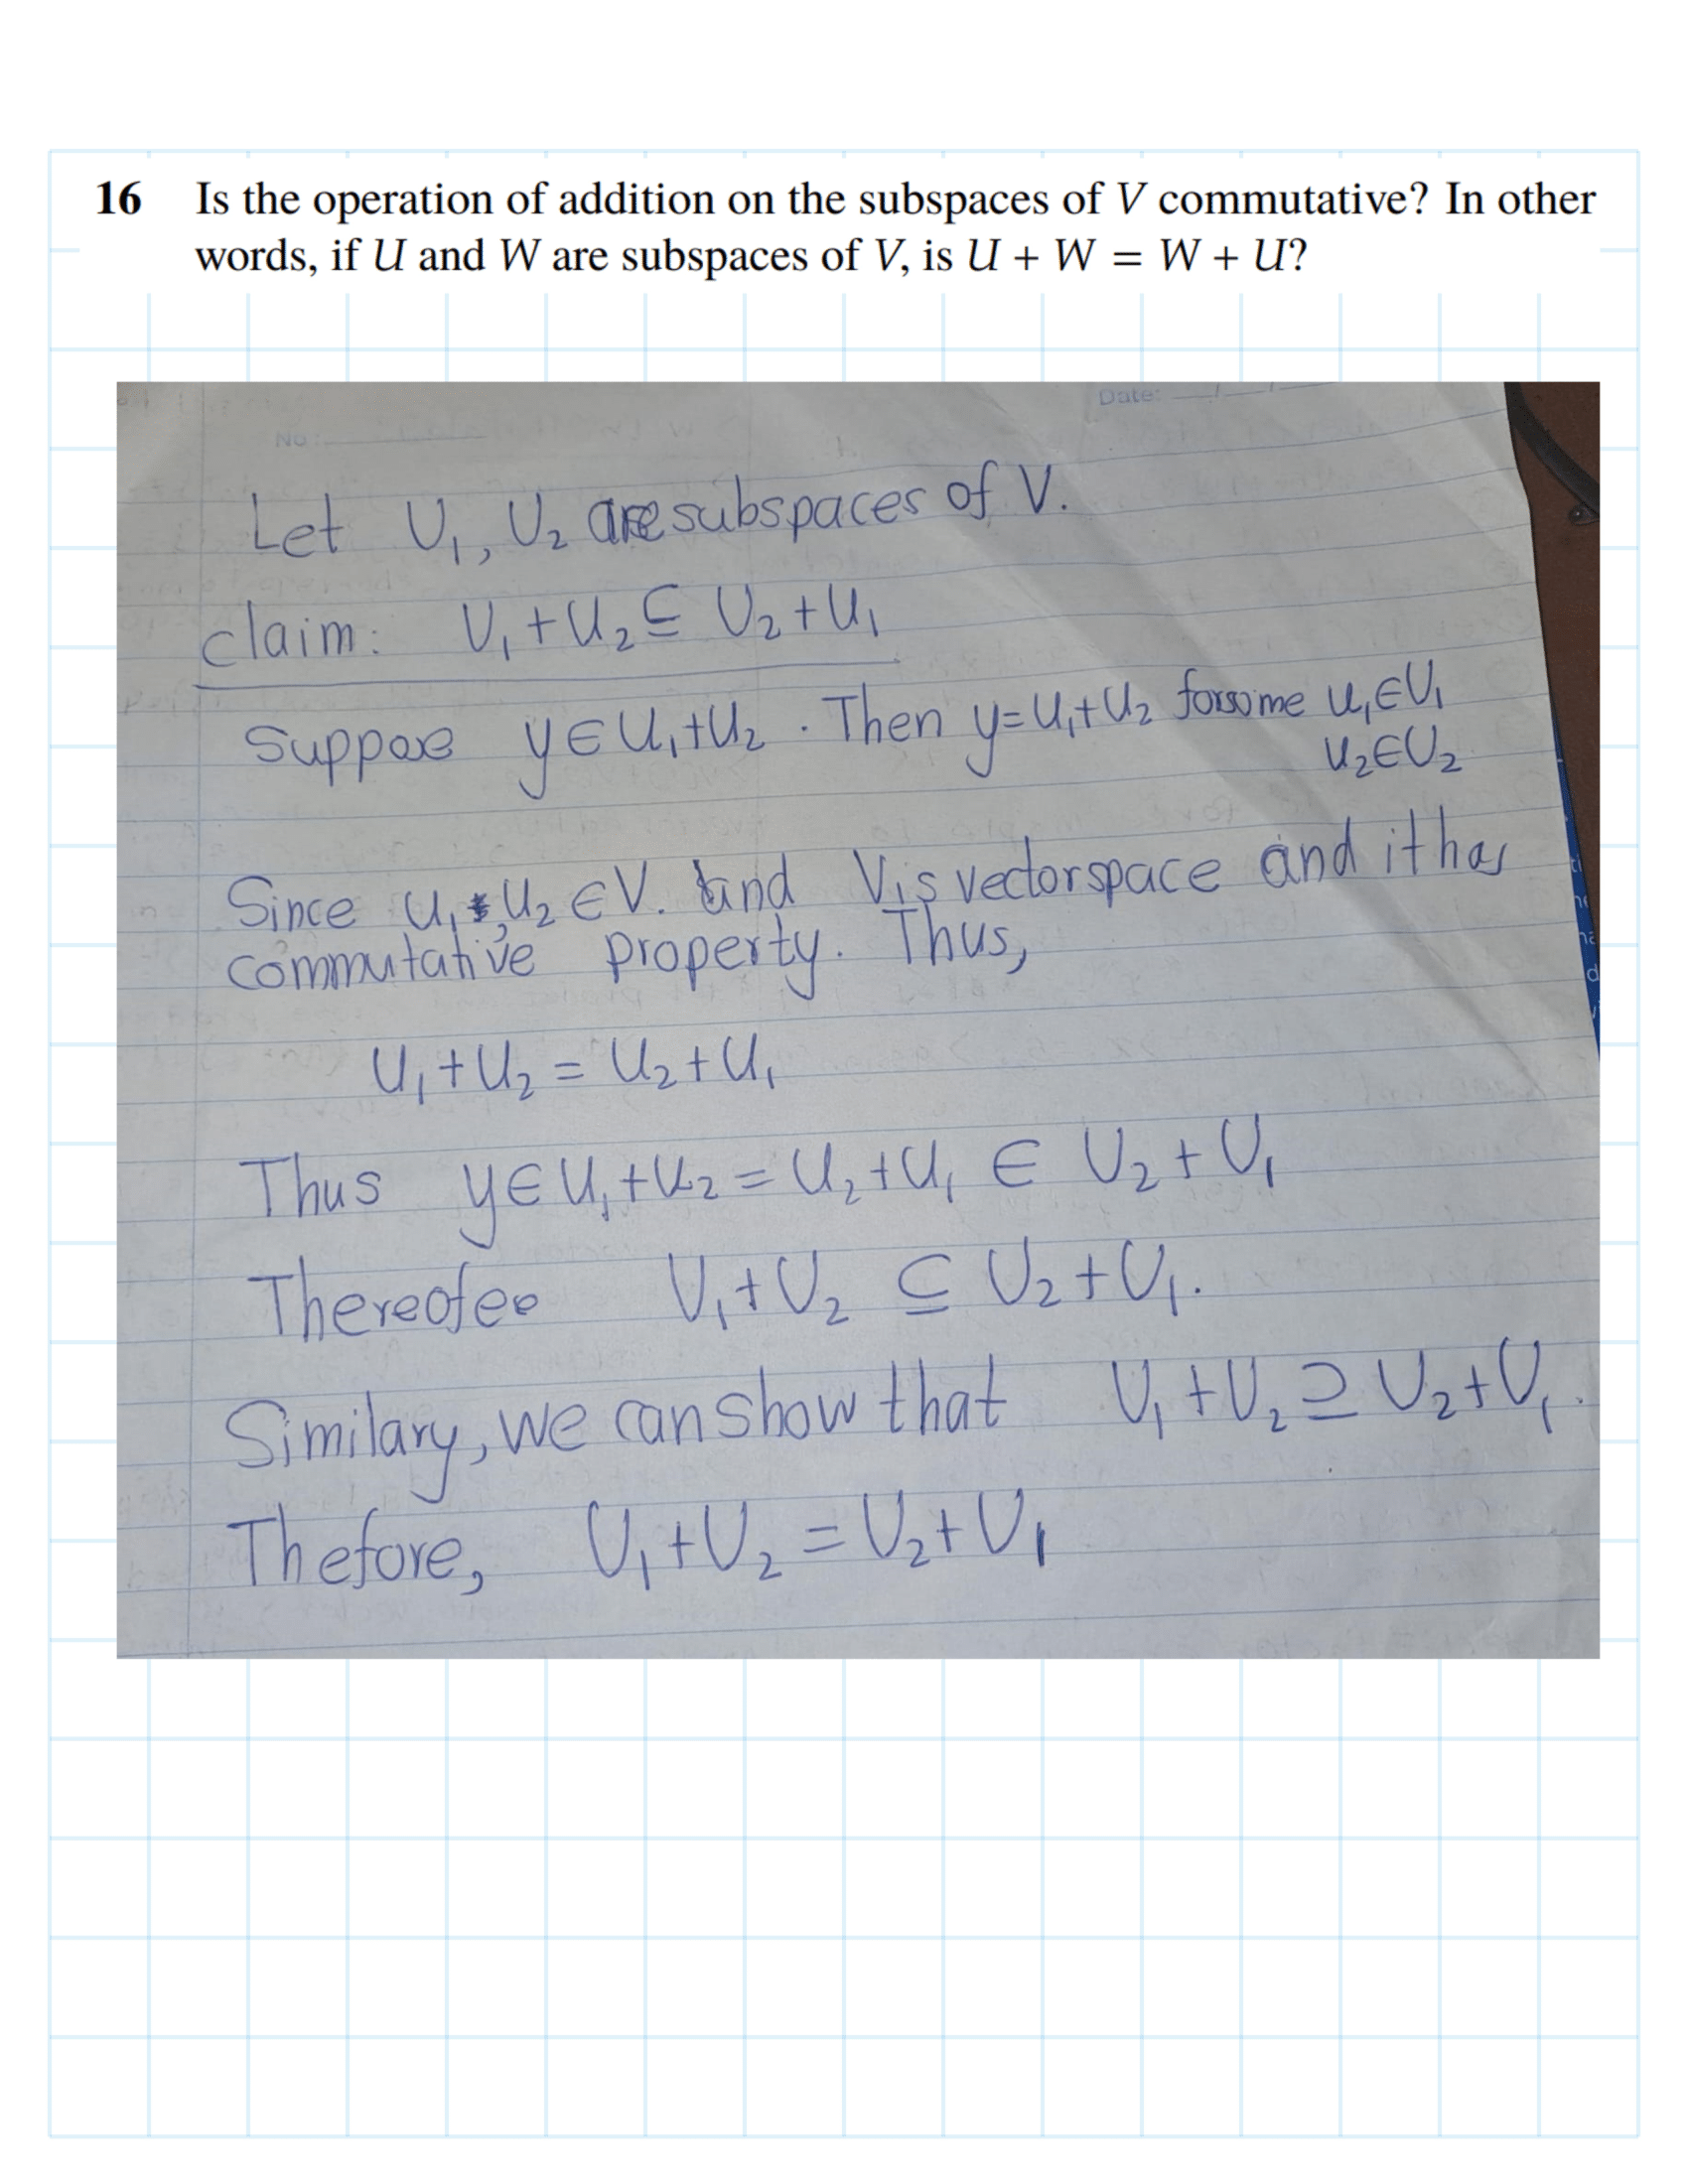 16 Is the operation of addition on the subspaces of V commutative? In other
words, if U and W are subspaces of V, is U + W = W + U?
No:
Date: __/__/__
Let U₁, U₂ are subspaces of V.
claim: U₁+U₂ ⊆ U₂+U₁
Suppoe y∈U₁+U₂. Then y=u₁+u₂ for some u₁∈U₁
u₂∈U₂
Since u₁,u₂ ∈V. and V is vector space and it has
commutative property. Thus,
u₁+u₂ = u₂+u₁
Thus y∈u₁+u₂ = u₂+u₁ ∈ U₂+U₁
Thereofee U₁+U₂ ⊆ U₂+U₁.
Similary, we can show that U₁+U₂ ⊇ U₂+U₁.
Thefore, U₁+U₂ = U₂+U₁